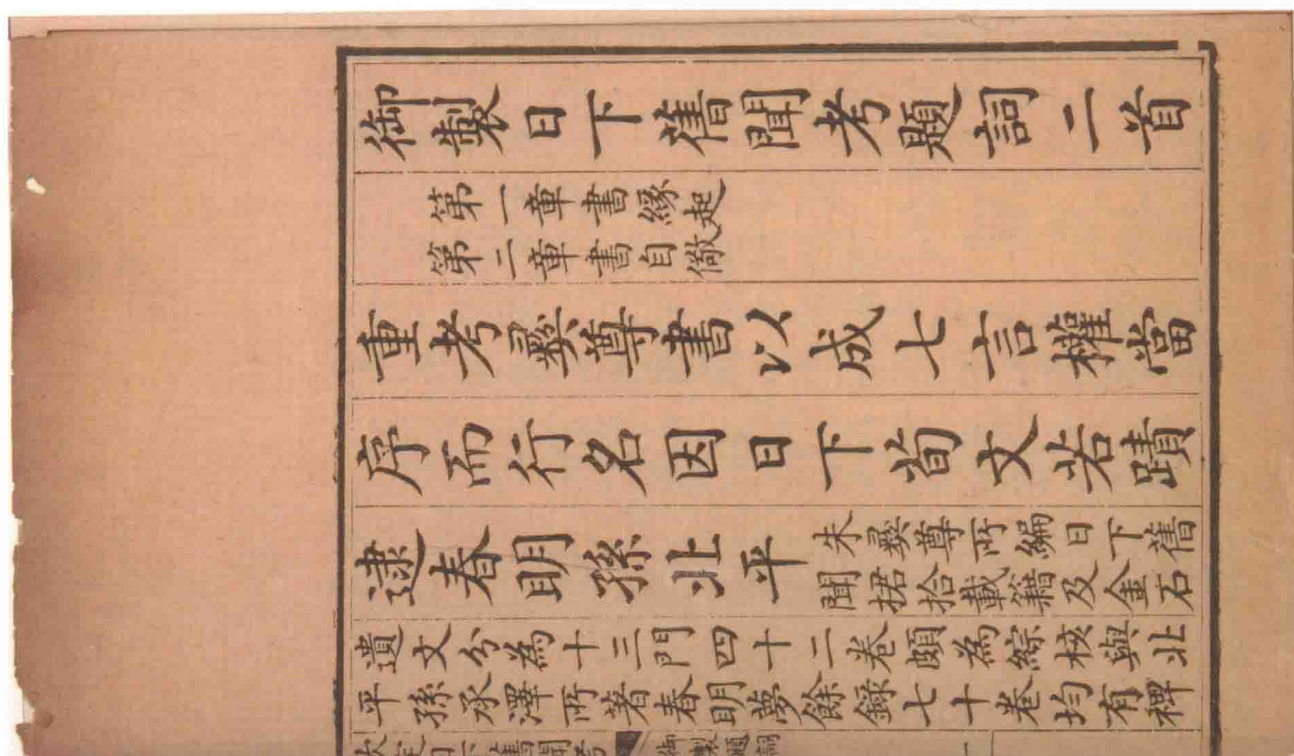 御製日下舊聞考題詞二首
第一章書緣起
第二章書自儆
重考彝尊書以成七言權當
序而行名因日下荀文若蹟
逮春明孫北平
朱彝尊所編日下舊
聞捃拾載籍及金石
遺文分為十三門四十二卷頗為綜核與北
平孫承澤所著春明夢餘錄七十卷均有裨
欽定日下舊聞考
御製題詞
一